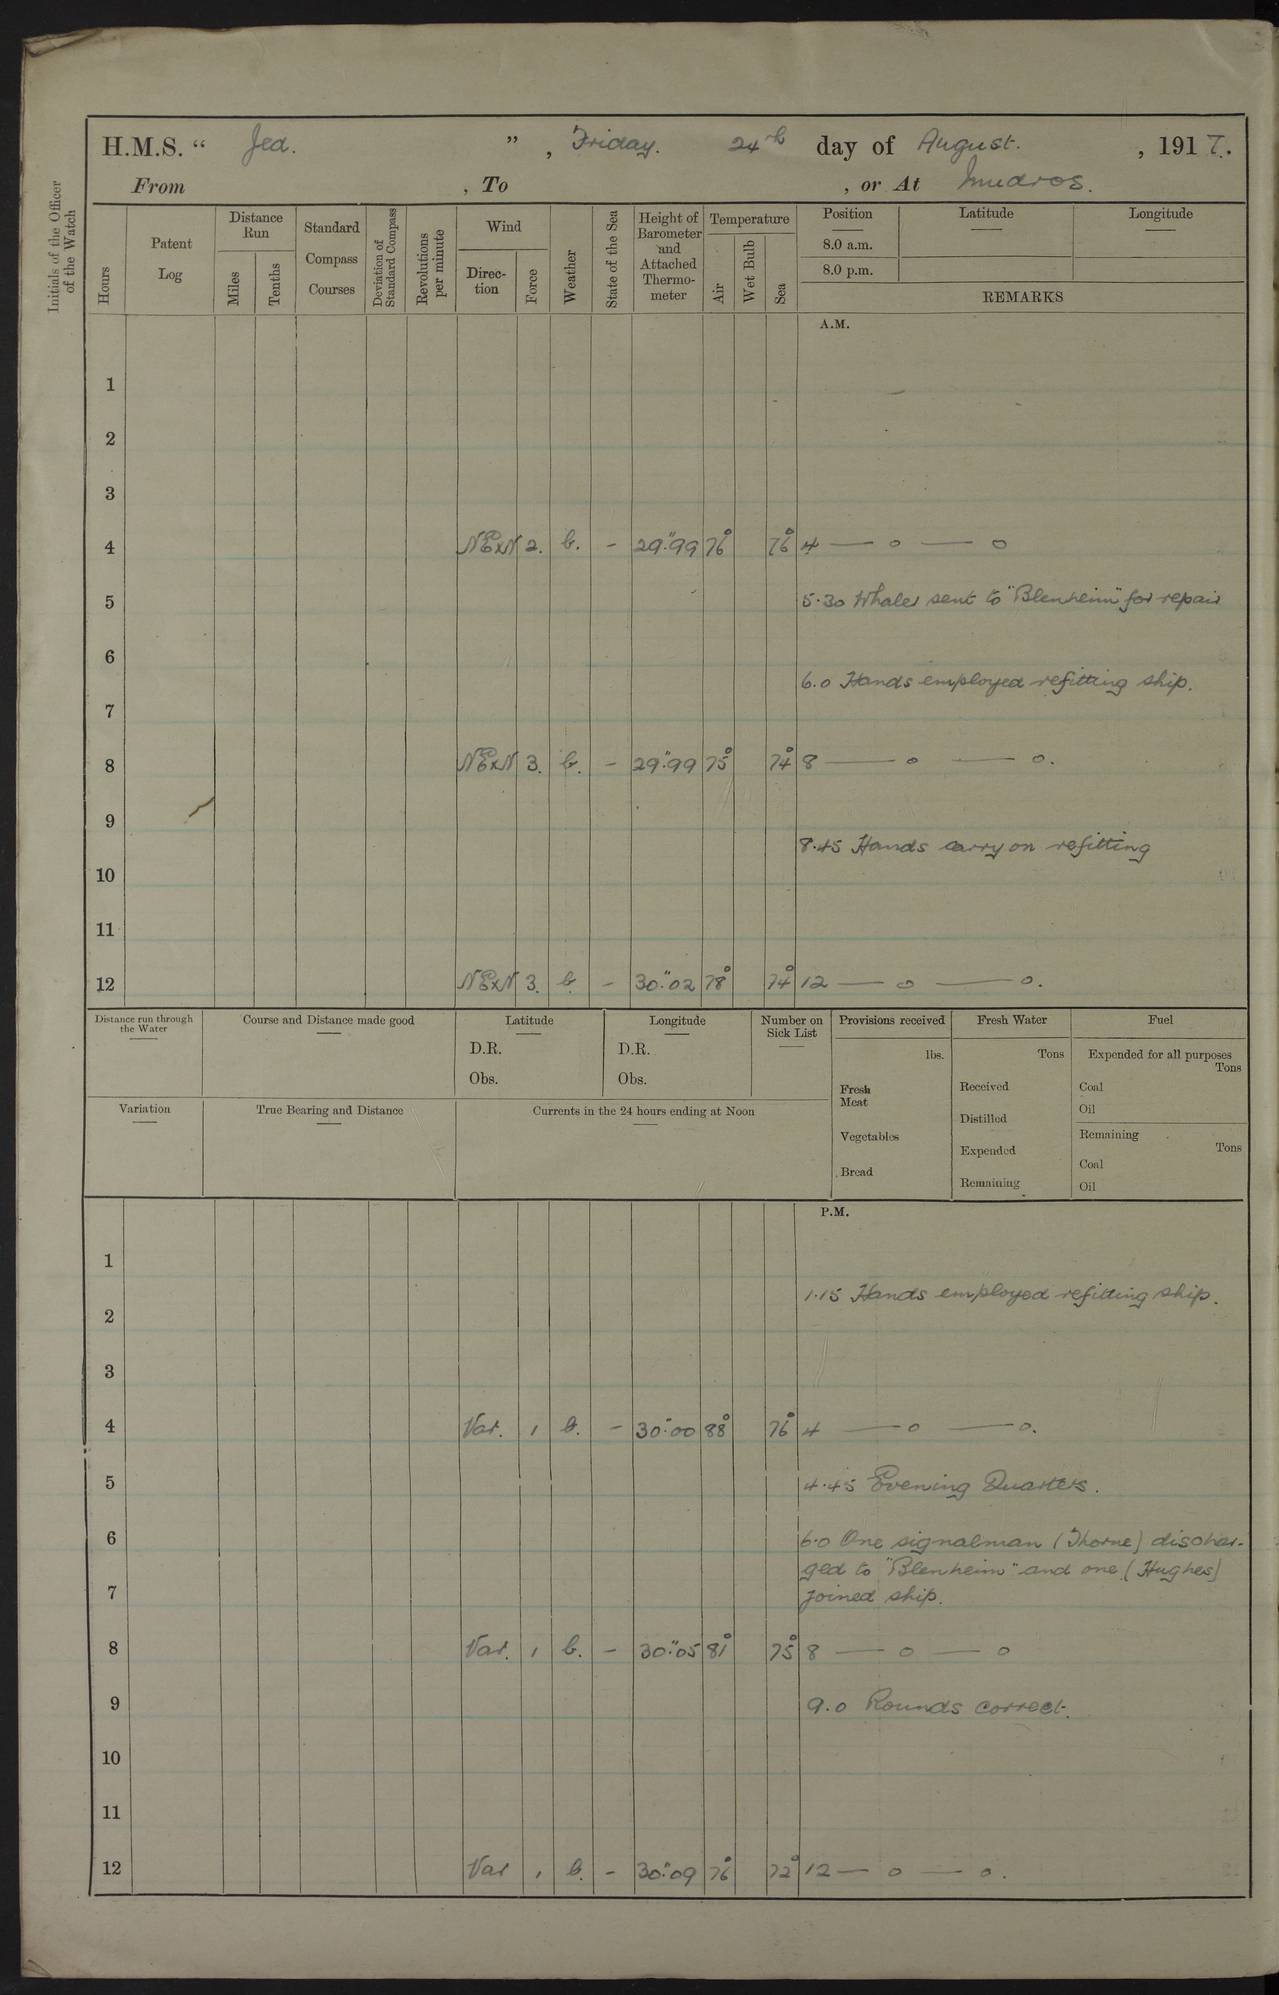 H.M.S. " Jed. ", Friday. 24th day of August. , 1917.
From , To , or At Mudros.
Initials of the Officer of the Watch
Hours
Patent Log
Distance Run
Miles
Tenths
Standard Compass Courses
Deviation of Standard Compass
Revolutions per minute
Wind
Direc-tion
Force
Weather
State of the Sea
Height of Barometer and Attached Thermo-meter
Temperature
Air
Wet Bulb
Sea
Position Latitude Longitude
8.0 a.m.
8.0 p.m.
REMARKS
A.M.
1
2
3
4 NExN 2. b. - 29."99 76° 76° 4 — o — o
5 5.30 Whaler sent to "Blenheim" for repair
6
6.0 Hands employed refitting ship.
7
8 NExN 3. b. - 29."99 75° 74° 8 — o — o.
9
8.45 Hands carry on refitting
10
11
12 NExN 3. b. - 30."02 78° 74° 12 — o — o.
Distance run through the Water
Course and Distance made good
Latitude
D.R.
Obs.
Longitude
D.R.
Obs.
Number on Sick List
Provisions received
lbs.
Fresh Meat
Vegetables
Bread
Fresh Water
Tons
Received
Distilled
Expended
Remaining
Fuel
Expended for all purposes
Tons
Coal
Oil
Remaining
Tons
Coal
Oil
Variation
True Bearing and Distance
Currents in the 24 hours ending at Noon
P.M.
1
1.15 Hands employed refitting ship.
2
3
4 Var. 1 b. - 30."00 88° 76° 4 — o — o.
5 4.45 Evening Quarters.
6 6.0 One signalman (Thorne) dischar-
ged to "Blenheim" and one (Hughes)
7 joined ship.
8 Var. 1 b. - 30."05 81° 75° 8 — o — o
9 9.0 Rounds correct.
10
11
12 Var 1 b. - 30."09 76° 72° 12 — o — o.